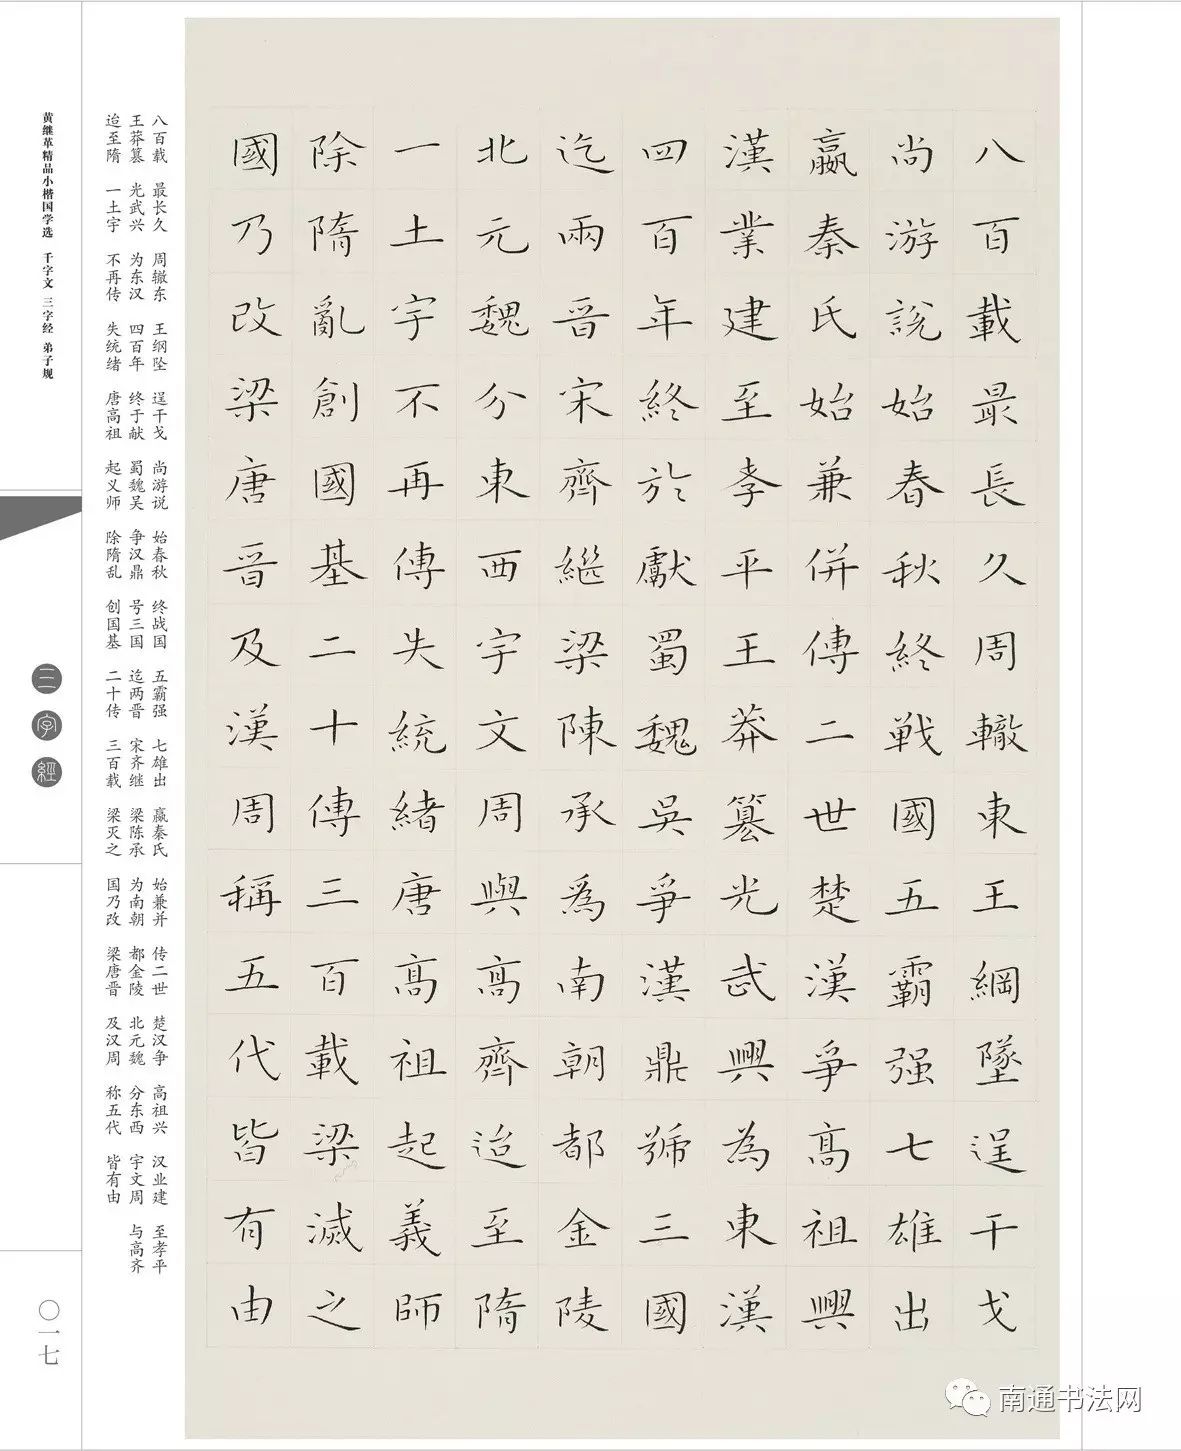 八百載最長久周轍東王綱墜逞干戈
尚游説始春秋終戦國五霸强七雄出
嬴秦氏始兼併傳二世楚漢爭高祖興
漢業建至孝平王莽篡光武興為東漢
四百年終於獻蜀魏吳爭漢鼎號三國
迄兩晉宋齊繼梁陳承為南朝都金陵
北元魏分東西宇文周與高齊迨至隋
一土宇不再傳失統緒唐高祖起義師
除隋亂創國基二十傳三百載梁滅之
國乃改梁唐晉及漢周稱五代皆有由
八百载 最长久 周辙东 王纲坠 逞干戈 尚游说 始春秋 终战国 五霸强 七雄出 嬴秦氏 始兼并 传二世 楚汉争 高祖兴 汉业建 至孝平
王莽篡 光武兴 为东汉 四百年 终于献 蜀魏吴 争汉鼎 号三国 迄两晋 宋齐继 梁陈承 为南朝 都金陵 北元魏 分东西 宇文周 与高齐
迨至隋 一土宇 不再传 失统绪 唐高祖 起义师 除隋乱 创国基 二十传 三百载 梁灭之 国乃改 梁唐晋 及汉周 称五代 皆有由
黄继革精品小楷国学选 千字文 三字经 弟子规
三字經
〇一七
南通书法网